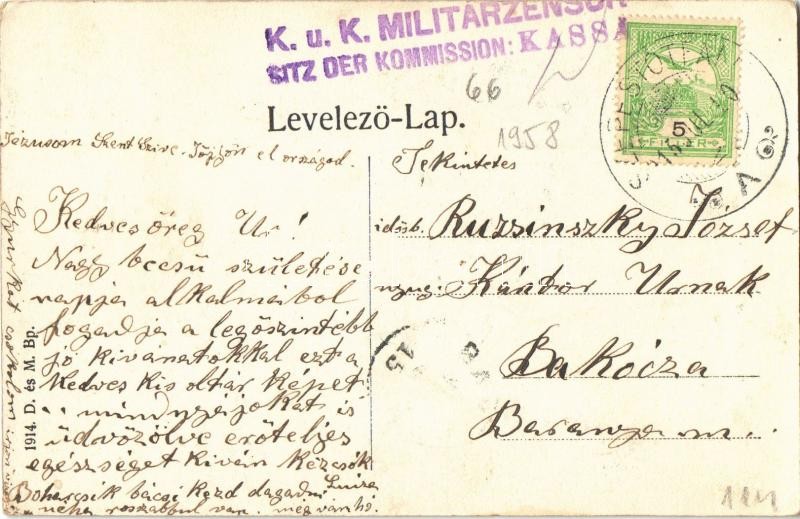 K. u. K. MILITÄRZENSUR
SITZ DER KOMMISSION: KASSA
66
Levelező-Lap.
1958
MAGYAR KIR. POSTA
5
FILLÉR
Jézusom Szent Szive. Jőjjön el országod.
Kedves öreg Ur!
Nagy becsü születése
napja alkalmából
fogadja a legőszintébb
jó kivánatokkal ezt a
Kedves kis oltár képet
mindnyájokat is
üdvözölve erőteljes
egészséget kiván kézcsók
Luiza
Boharcsik bácsi kezd dagadni
néha roszabbul van. még van hó.
1914. D. és M. Bp.
Tekintetes
idősb. Ruzsinszky József
nyug: Kántor Urnak
Bakócza
Baranya m.
15